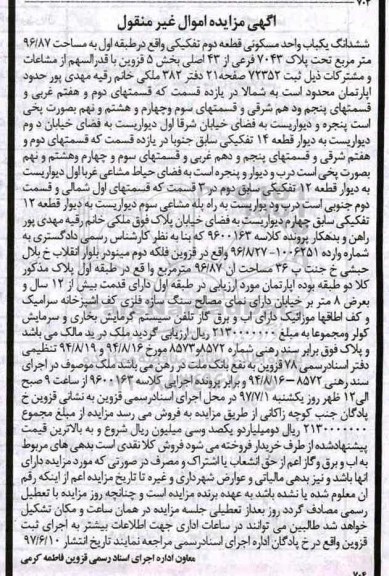 ۷۰۳
آگهی مزایده اموال غیر منقول
ششدانگ یکباب واحد مسکونی قطعه دوم تفکیکی واقع درطبقه اول به مساحت ۹۶/۸۷
متر مربع تحت پلاک ۷۰۴۳ فرعی از ۴۳ اصلی بخش ۵ قزوین با قدرالسهم از مشاعات
و مشترکات ذیل ثبت ۷۲۳۵۲ صفحه۲۱ دفتر ۳۸۲ ملکی خانم رقیه مهدی پور حدود
آپارتمان محدود است به شمالا در یازده قسمت که قسمتهای دوم و هفتم غربی و
قسمتهای پنجم ودهم شرقی و قسمتهای سوم وچهارم و هشتم و نهم بصورت پخی
است پنجره و دیواریست به فضای خیابان شرقا اول دیواریست به فضای خیابان دوم
دیواریست به دیوار قطعه ۱۴ تفکیکی سابق جنوبا در یازده قسمت که قسمتهای دوم و
هفتم شرقی و قسمتهای پنجم و دهم غربی و قسمتهای سوم و چهارم وهشتم و نهم
بصورت پخی است درب و دیوار و پنجره است به فضای حیاط مشاعی غربا اول دیواریست
به دیوار قطعه ۱۲ تفکیکی سابق دوم در ۳ قسمت که قسمتهای اول شمالی و قسمت
دوم جنوبی است درب ودیواریست به راه پله مشاعی سوم دیواریست به دیوار قطعه ۱۲
تفکیکی سابق چهارم دیواریست به فضای خیابان پلاک فوق ملکی خانم رقیه مهدی پور
راهن و بدهکار پرونده کلاسه ۹۶۰۰۱۶۳ که بنا به نظر کارشناس رسمی دادگستری به
شماره وارده ۱۰۰۶۳۵۱-۹۶/۸/۲۷ واقع در قزوین فلکه دوم مینودر بلوار انقلاب خ بلال
حبشی خ جنت پ ۳۶ مساحت آن ۹۶/۸۷ مترمربع واقع در طبقه اول پلاک مذکور
کلا دو طبقه بوده آپارتمان مورد ارزیابی در طبقه اول دارای قدمت بیش از ۱۲ سال و
بعرض ۸ متر بر خیابان دارای نمای مصالح سنگ سازه فلزی کف آشپزخانه سرامیک
و کف اطاقها موزائیک دارای آب و برق گاز تلفن سیستم گرمایش بخاری و سرمایش
کولر ومجموعا به مبلغ ۲۱۳۰۰۰۰۰۰۰ ریال ارزیابی گردید ملک در ید مالک می باشد
و پلاک فوق برابر سند رهنی شماره ۸۵۷۲و۸۵۷۳ مورخ ۹۴/۸/۱۶ و ۹۴/۸/۱۹ تنظیمی
دفتر اسنادرسمی ۷۸ قزوین به نفع بانک ملت در رهن می باشد ملک موصوف در اجرای
سند رهنی ۸۵۷۲ – ۹۴/۸/۱۶ و برابر پرونده اجرایی کلاسه ۹۶۰۰۱۶۳ از ساعت ۹ صبح
الی ۱۲ ظهر روز یکشنبه ۹۷/۷/۱ در محل اجرای اسنادرسمی قزوین به نشانی قزوین خ
پادگان جنب کوچه زاکانی از طریق مزایده به فروش می رسد مزایده از مبلغ مجموع
۲۱۳۰۰۰۰۰۰۰ ریال دومیلیاردو یکصد وسی میلیون ریال شروع و به بالاترین قیمت
پیشنهادشده از طرف خریدار فروخته می شود فروش کلا نقدی است بدهی های مربوط
به آب و برق وگاز اعم از حق انشعاب یا اشتراک و مصرف در صورتی که مورد مزایده دارای
آنها باشد و نیز بدهی مالیاتی و عوارض شهرداری و غیره تا تاریخ مزایده اعم از اینکه رقم
آن معلوم شده یا نشده باشد به عهده برنده مزایده است و چنانچه روز مزایده با تعطیل
رسمی مصادف گردد روز بعداز تعطیلی جلسه مزایده در همان ساعت و مکان تشکیل
خواهد شد طالبین می توانند در ساعات اداری جهت اطلاعات بیشتر به اجرای ثبت
قزوین واقع در خ پادگان اداره اجرای اسنادرسمی مراجعه نمایند تاریخ انتشار ۹۷/۶/۱۰
معاون اداره اجرای اسناد رسمی قزوین فاطمه کرمی
۷۰۴